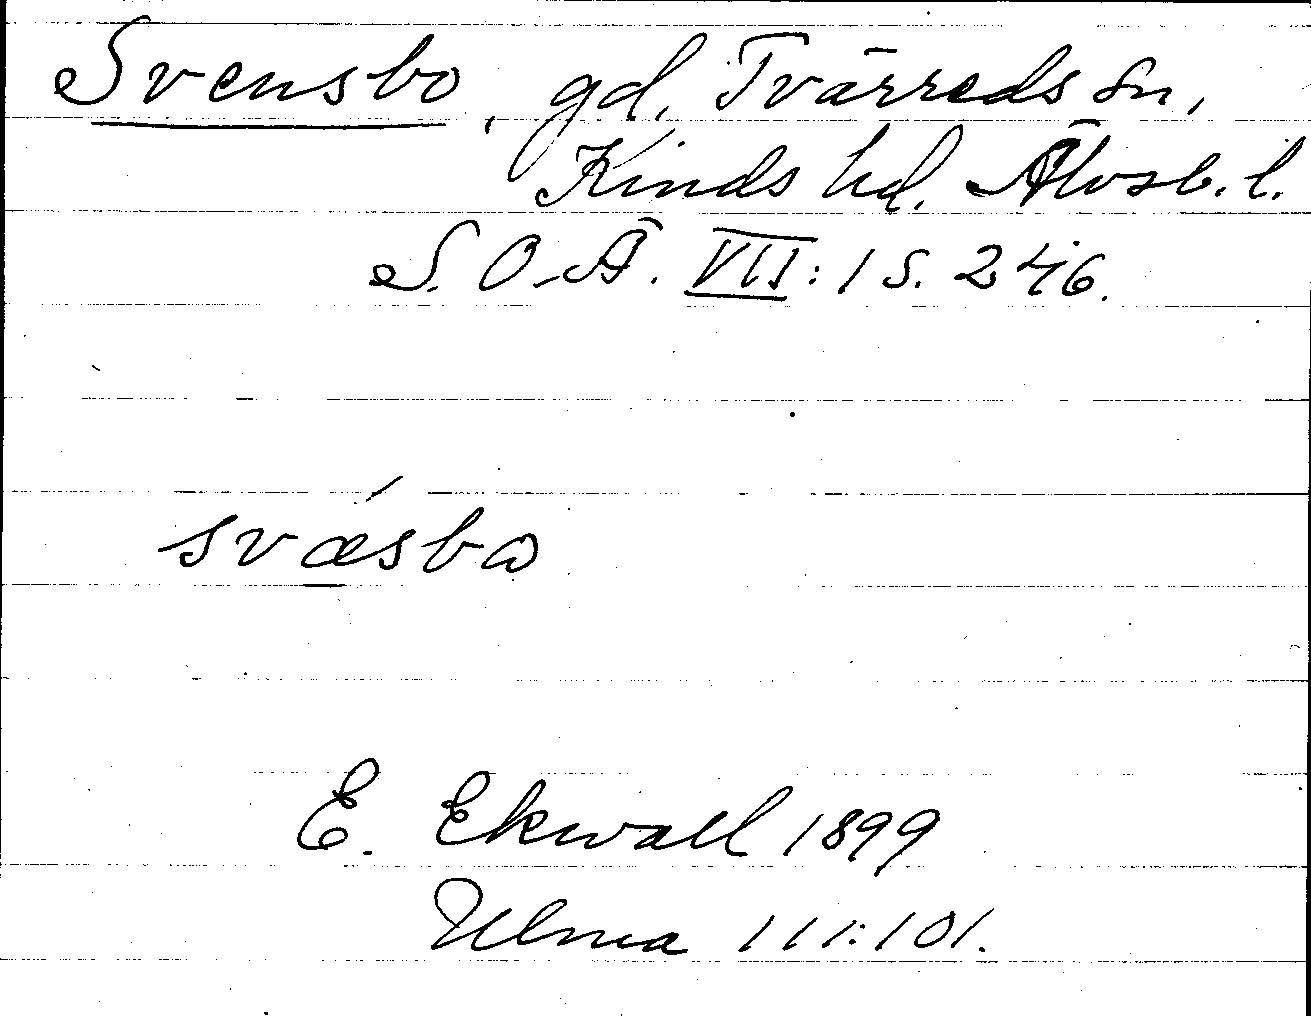 Svensbo, gd, Tvärreds sn,
Kinds hd. Älvsb. l.
S. O. Ä. VII: 1 s. 246.
svǽsbω
E. Ekwall 1899
Ulma 111:101.